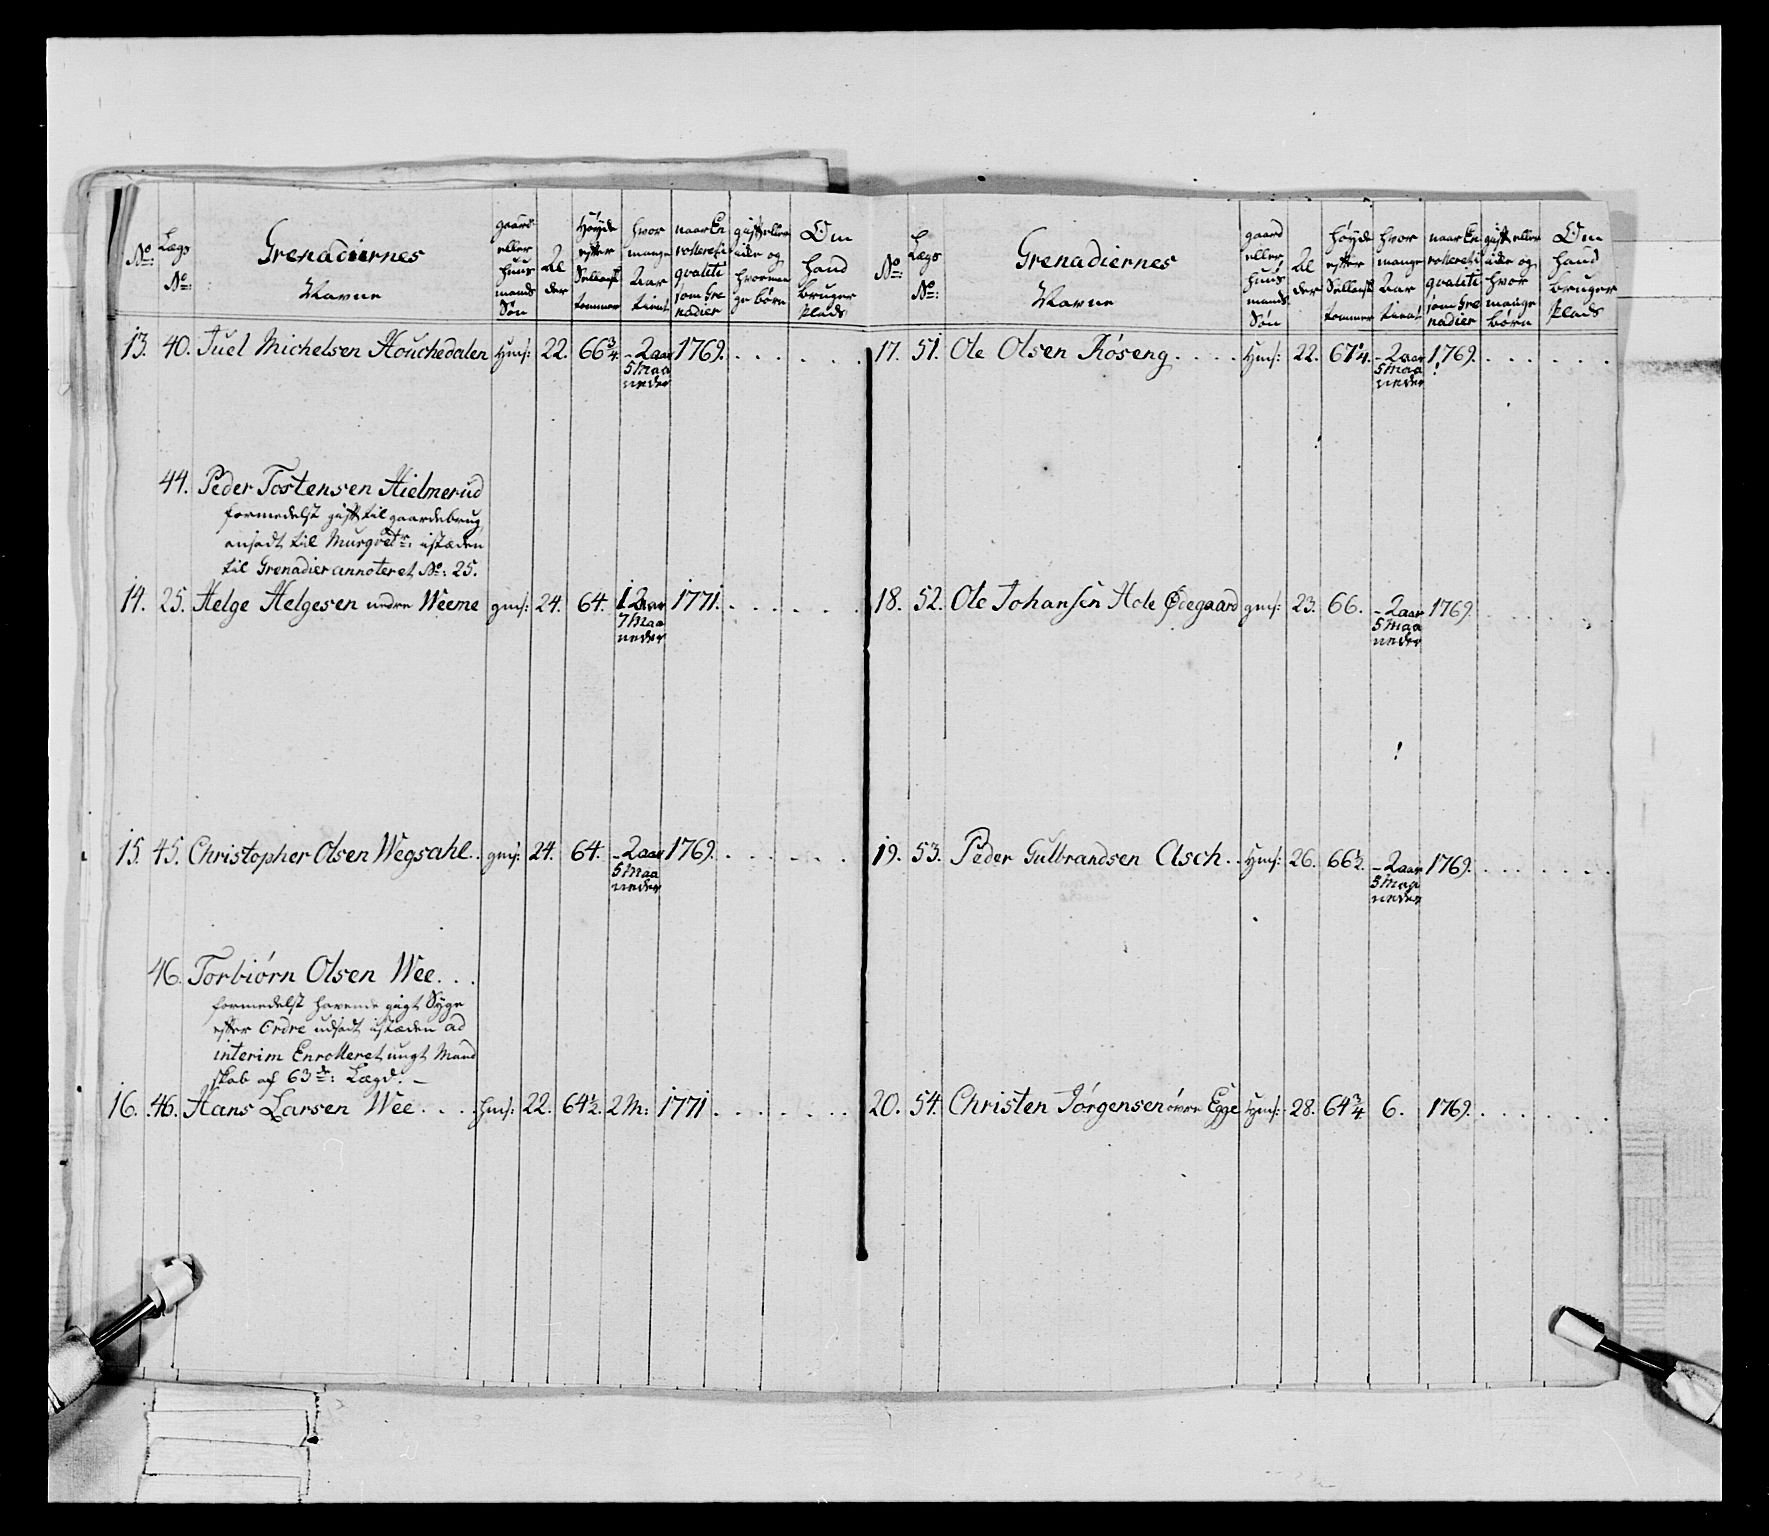 No:
Lægs No:
Grenadiernes
Navne
gaard eller huus mands Søn
Al der
Høyde efter Sellansk tommer
hvor mange Aar tient
naar En rolleret i qvaliti som Gre nadier
gift eller icke og hvor man ge børn
Om hand bruger plads
13. 40. Juel Michelsen Houchedalen Hms: 22. 66 3/4 - 2 aar 1769. . . . . .
5 Maa
neder
44. Peder Tostensen Hielmerud
formedelst gift til gaardebrug
ansadt til Musqvetr: istæden
til Grenadier annoteret No: 25.
14. 25. Helge Helgesen nedre Weeme gms: 24. 64. 1 aar 1771. . . . . .
7 Maa
neder
15. 45. Christopher Olsen Wegsahl. . gms: 24. 64. - 2 aar 1769. . . . . .
5 Maa
neder
46. Torbiørn Olsen Wee. . .
formedelst havende gigt Syge
efter Ordre udsadt istæden ad
interim Enrolleret ungt Mand
skab af 63de: Lægd. -
16. 46. Hans Larsen Wee . . . . hms: 22. 64 1/2. 2 M: 1771 . . . . . .
No:
Lægs No:
Grenadiernes
Navne
gaard eller huus mands Søn
Al der.
høyde efter Sellansk tommer
hvor mange Aar tient
naar En rolleret i qvaliti som Gre nadier
gift eller icke og hvor mange børn
Om hand bruger plads
17. 51. Ole Olsen Røseng . . . . Hms: 22. 67 1/4. - 2 aar 1769. . . . . .
5 Maa
neder
18. 52. Ole Johansen Hole Ødegaard gms: 23. 66. - 2 aar 1769. . . . . .
5 Maa
neder
19. 53. Peder Gulbrandsen Asch. . Hms: 26. 66 1/2. - 2 aar 1769. . . . . .
5 Maa
neder
20. 54. Christen Jørgensen øvre Egge Hms: 28. 64 3/4 6. 1769. . . . . .